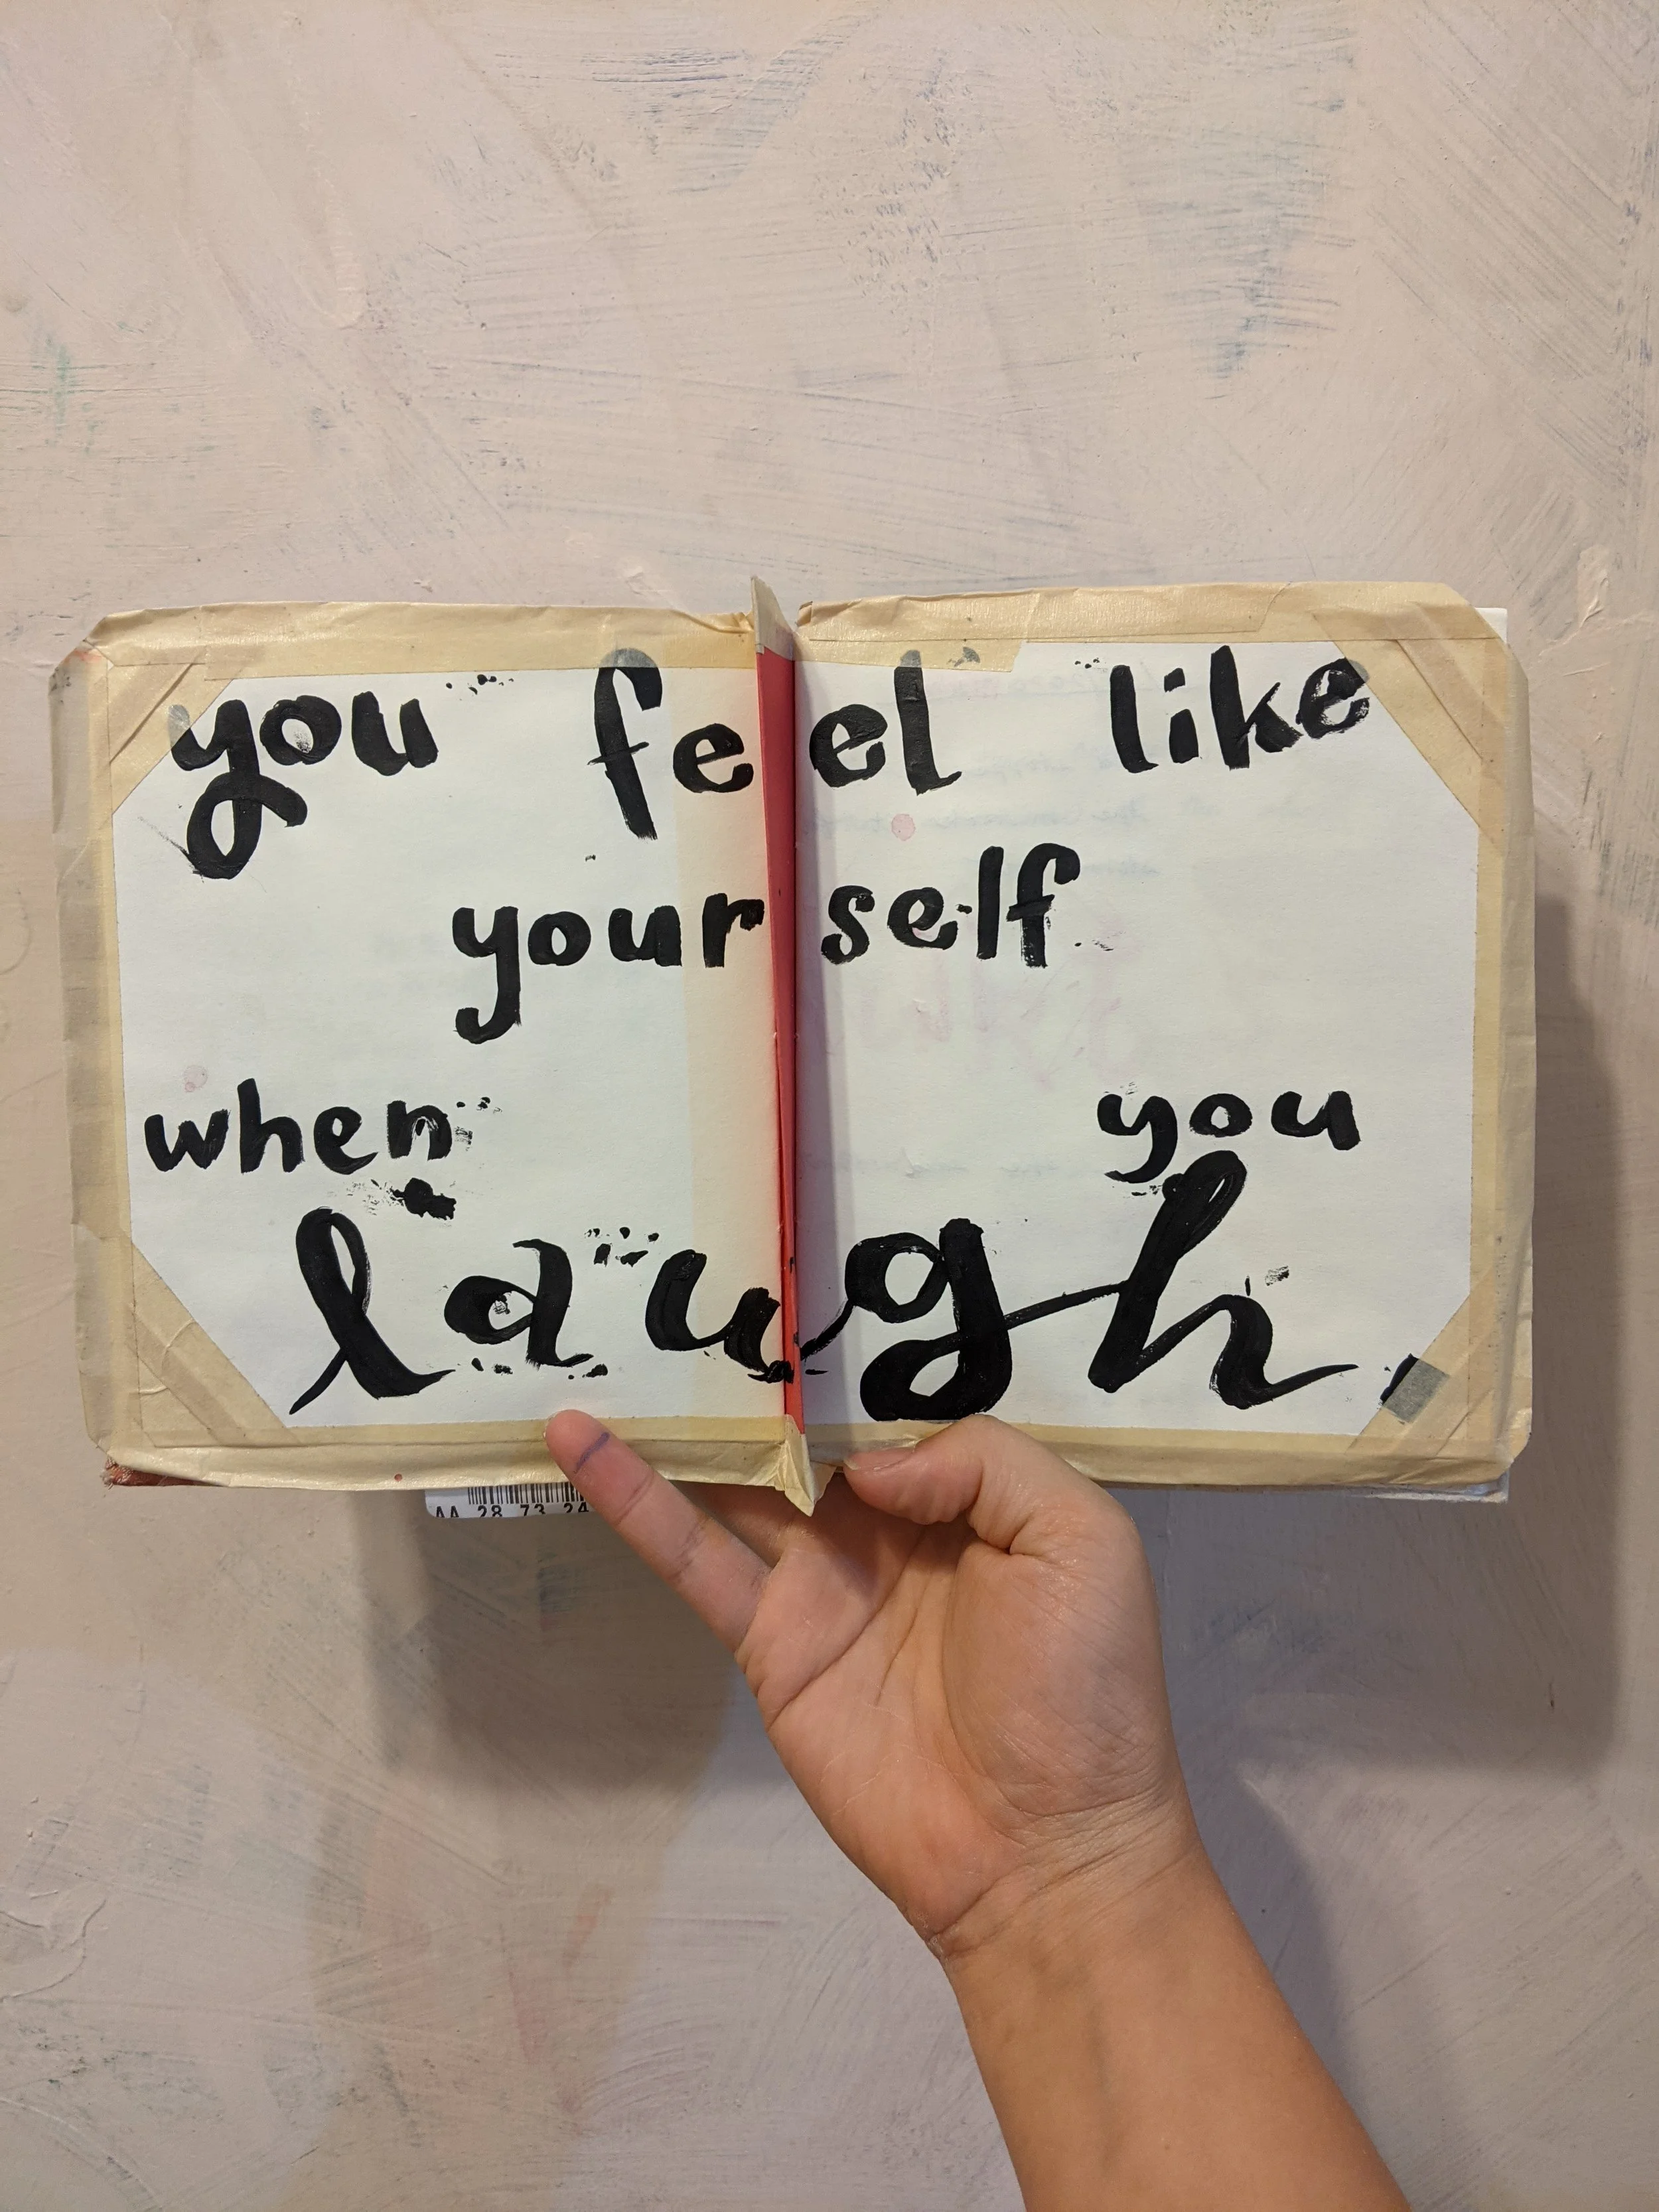 you feel like
yourself
when you
laugh.
AA 28 73 24